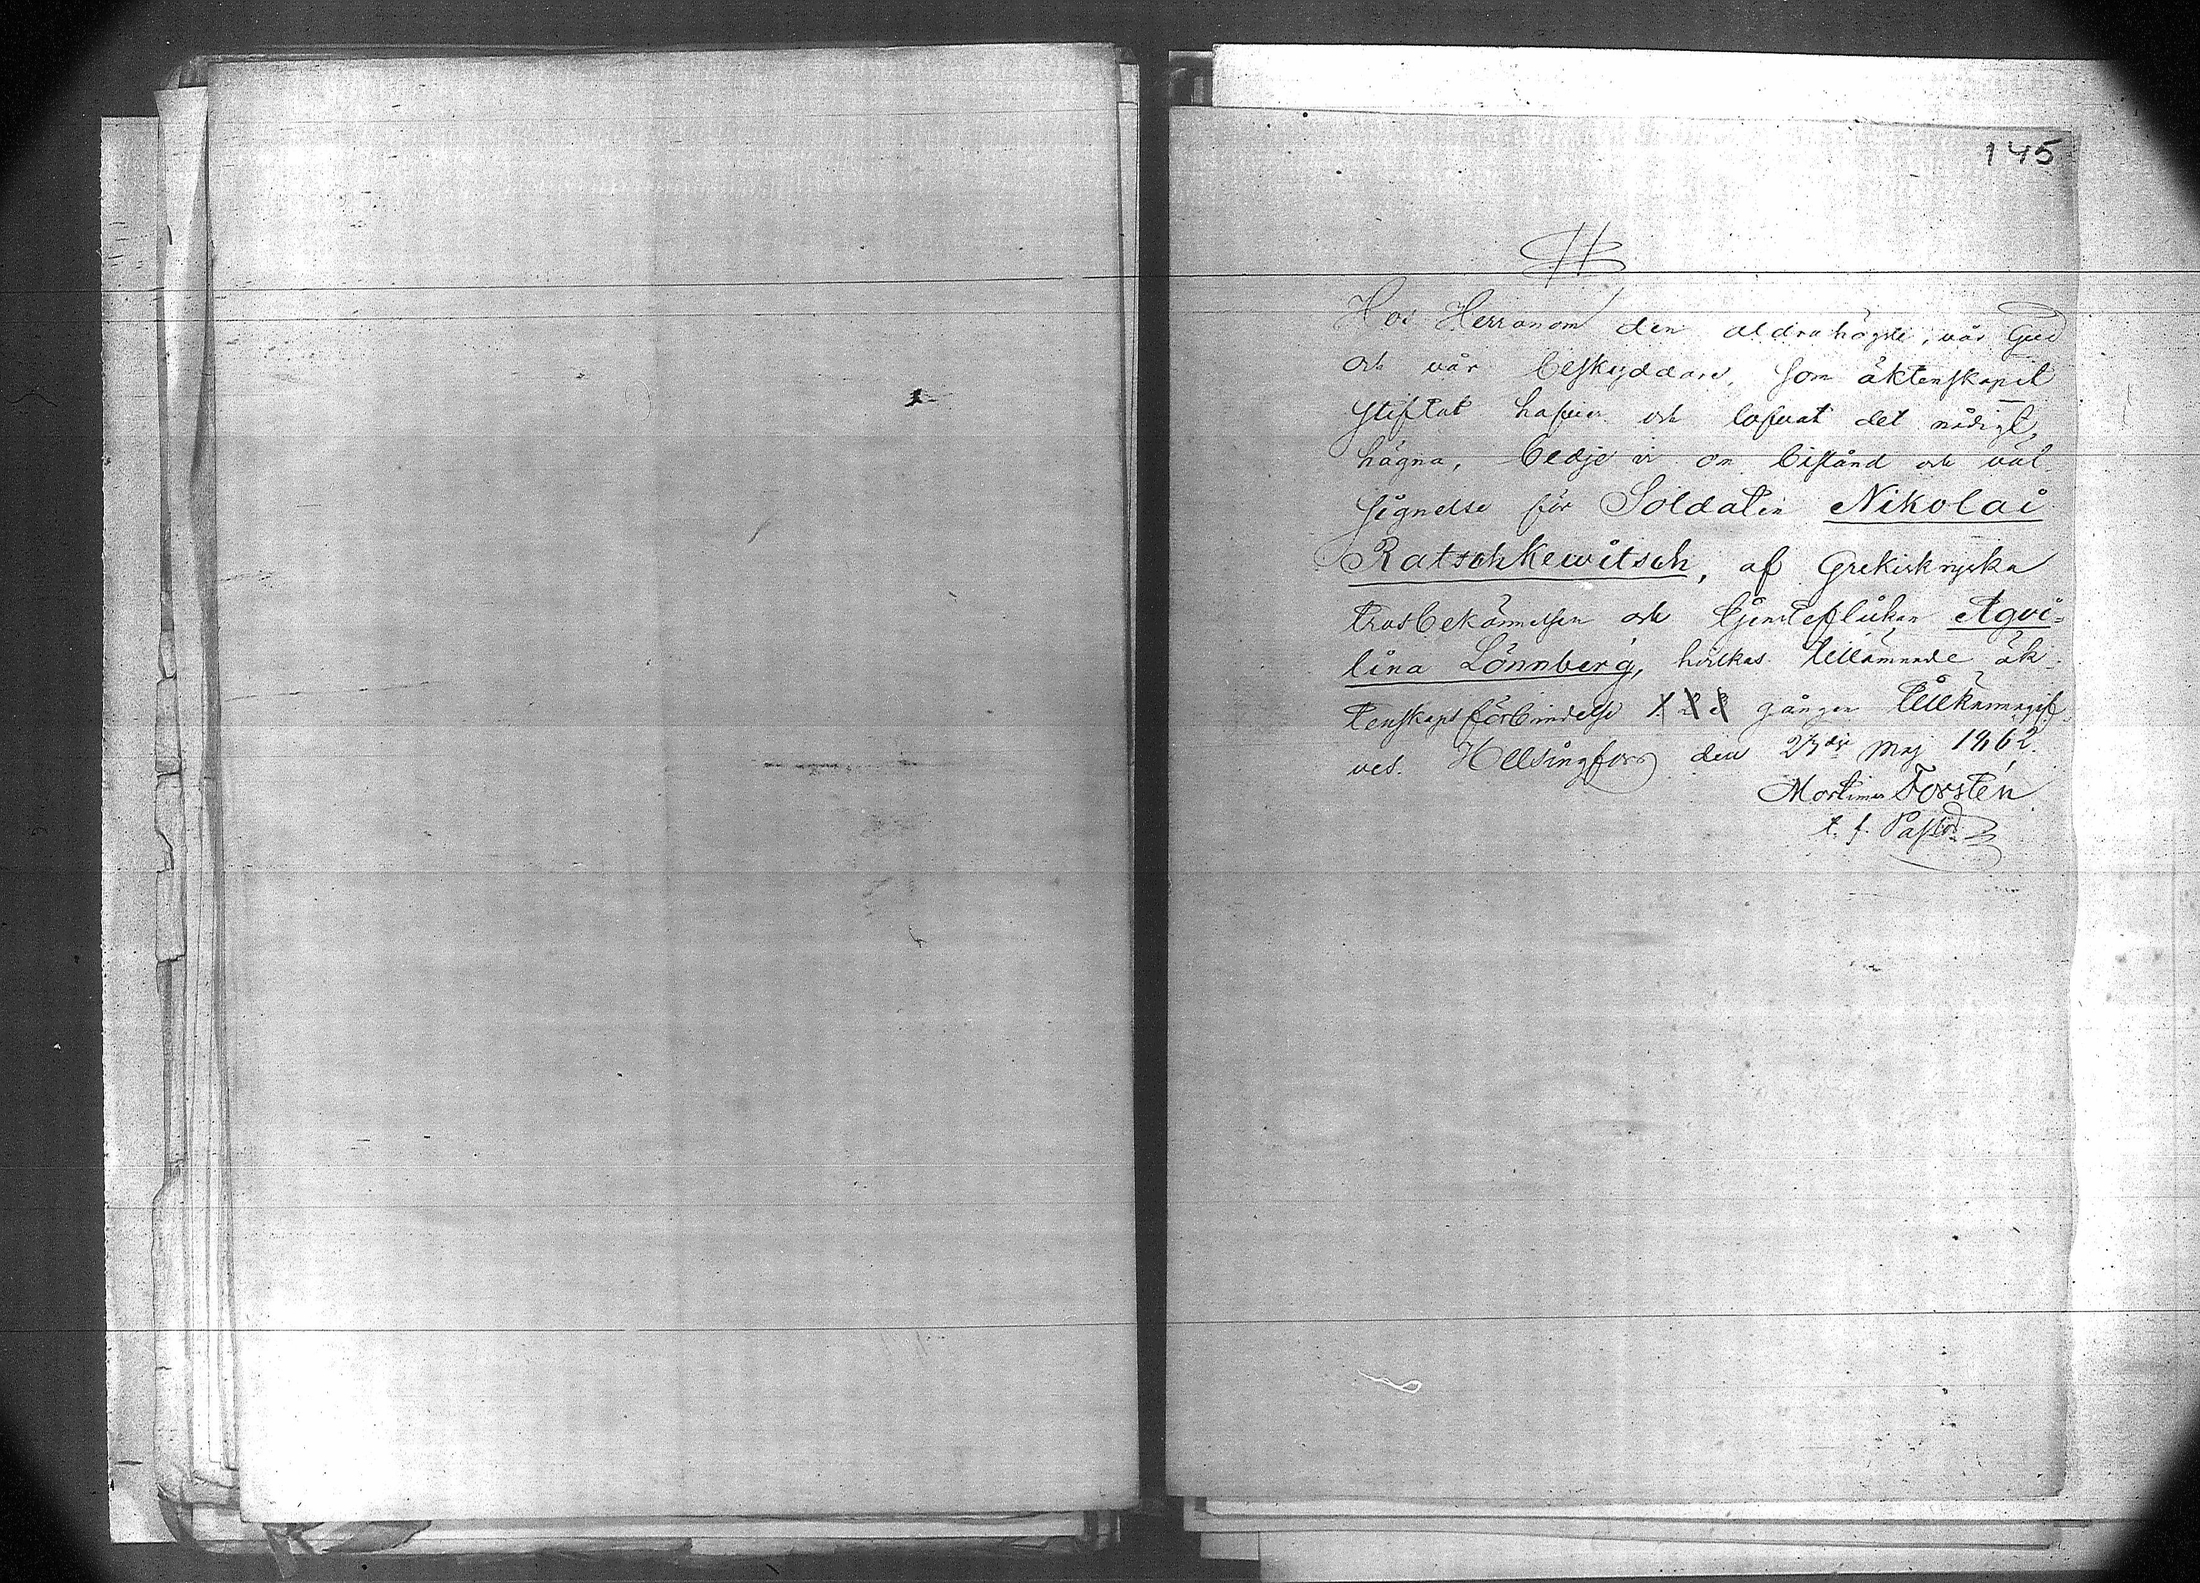 145
Hos Herranom den aldrahögste, vår Gud
och vår beskyddare, som äktenskapet
stiftat hafver och lofvat det nådigt
hägna, bedje vi om bistånd och väl-
signelse för Soldaten Nikolai
Ratschkewitsch, af Grekiskryska
trosbekännelsen och tjensteflickan Agvi-
lina Lönnberg, hvilkas tillämnade äk-
tenskapsförbindelse 1. 2. 3. gången tillkännagif-
ves. Helsingfors den dje Maj 1862.
Mortimer Forstén
t. f. Pastor